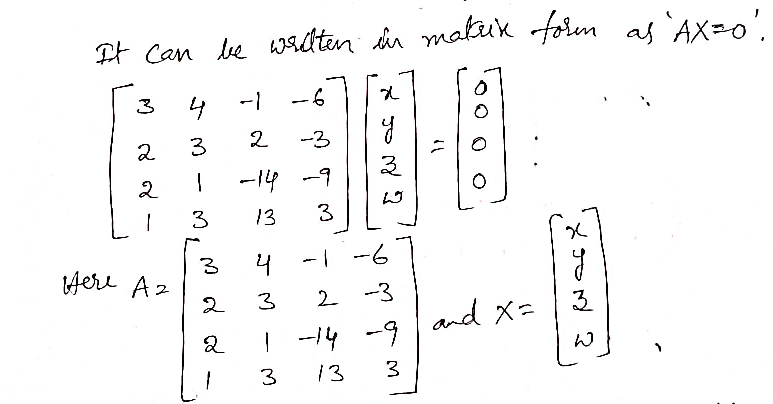 It can be written in matrix form as 'AX=0'.
3 4 -1 -6 x 0
2 3 2 -3 y = 0
2 1 -14 -9 z 0
1 3 13 3 w 0
Here A = 3 4 -1 -6
2 3 2 -3
2 1 -14 -9
1 3 13 3
and X = x
y
z
w